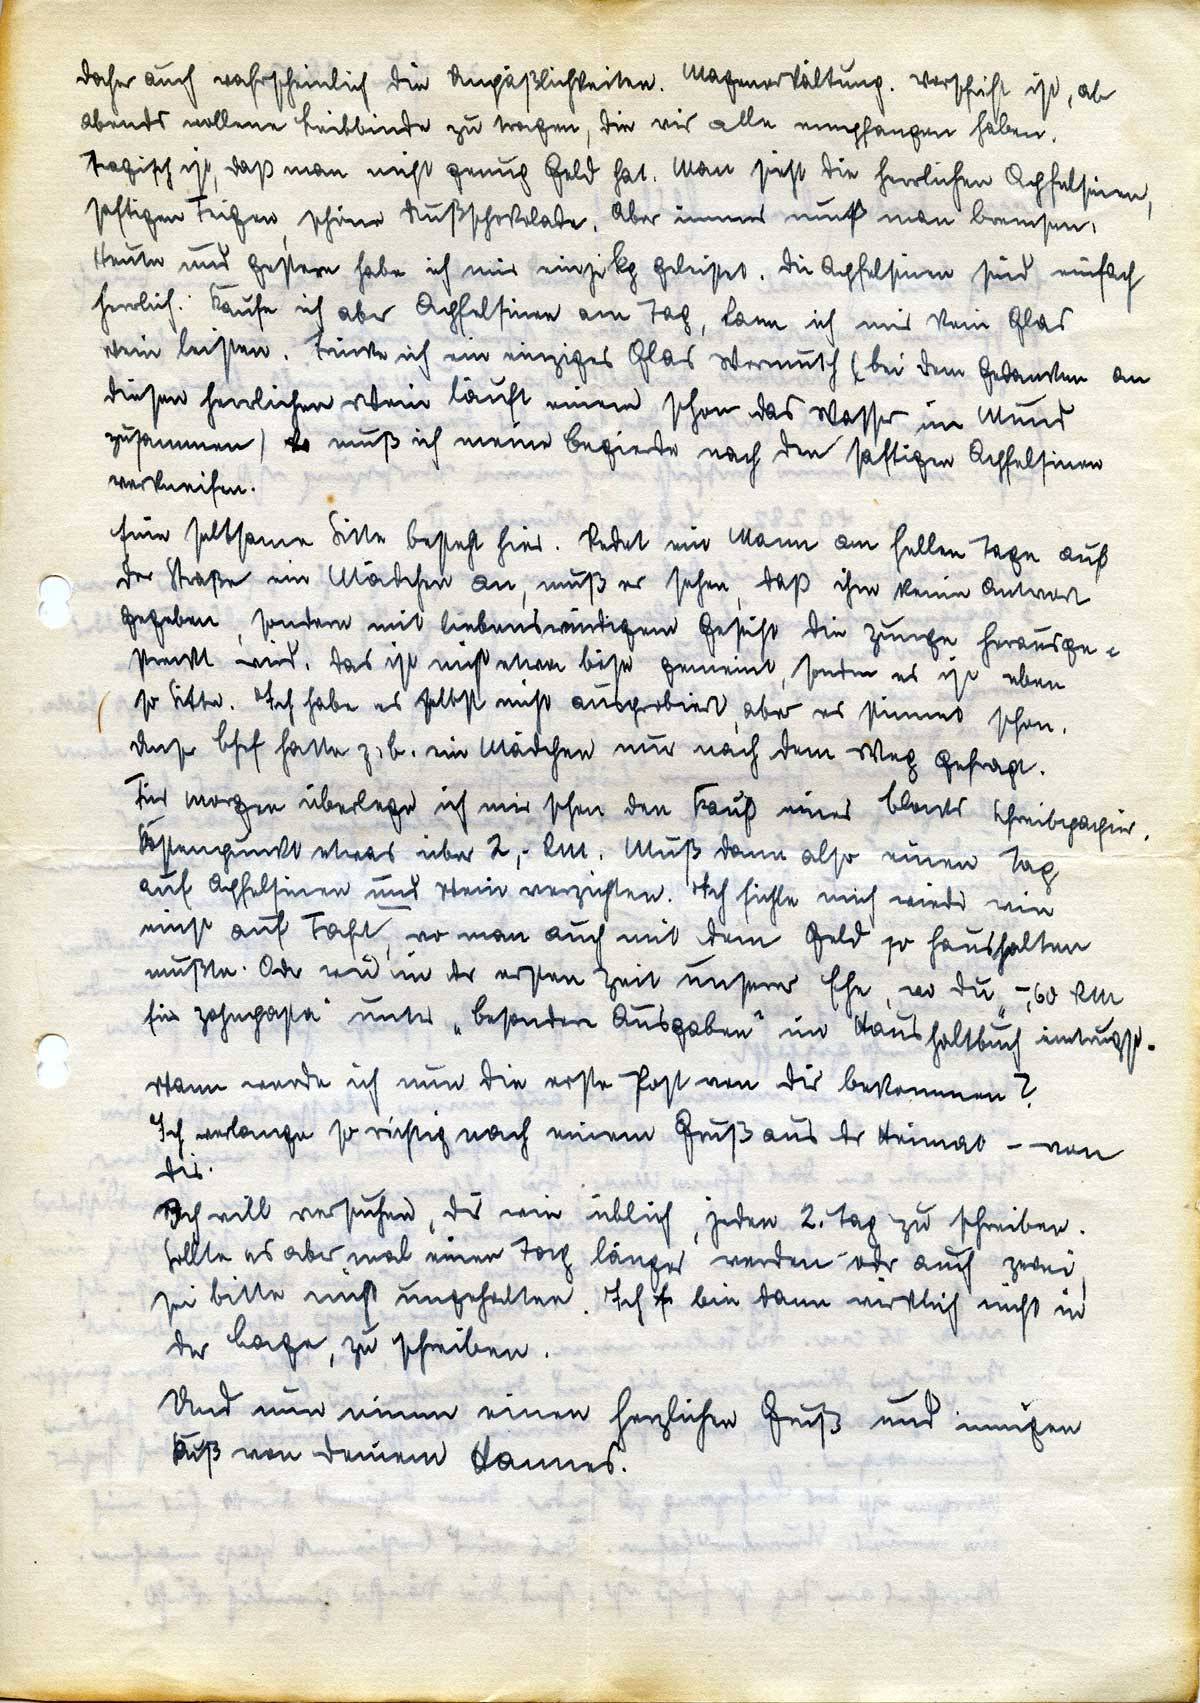 daher auch wahrscheinlich die Unpäßlichkeiten. Magenerkältung. Vorschrift ist, ab
abends wollene Leibbinde zu tragen, die wir alle empfangen haben.
Tragisch ist, daß man nicht genug Geld hat. Man sieht die herrlichen Apfelsinen,
saftigen Feigen, schöne Nußschokolade. Aber immer muß man bremsen.
Heute und gestern habe ich mir ein kg geleistet. Die Apfelsinen sind einfach
herrlich. Kaufe ich aber Apfelsinen am Tag, kann ich mir kein Glas
Wein leisten. Trinke ich ein einziges Glas Wermuth (bei dem Gedanken an
diesen herrlichen Wein läuft einem schon das Wasser im Mund
zusammen) muß ich meine Begierde nach den saftigen Apfelsinen
verkneifen.
Eine seltsame Sitte besteht hier. Redet ein Mann am hellen Tage auf
der Straße ein Mädchen an, muß er sehen, daß ihm keine Antwort
gegeben, sondern mit liebenswürdigem Gesicht die Zunge herausge-
streckt wird. Das ist nicht etwa böse gemeint, sondern es ist eben
so Sitte. Ich habe es selbst nicht ausprobiert, aber es stimmt schon.
Unser Chef hatte z.b. ein Mädchen nur nach dem Weg gefragt.
Für Morgen überlege ich mir schon den Kauf eines Blocks Schreibpapier.
Kostenpunkt etwas über 2,- RM. Muß dann also einen Tag
auf Apfelsinen und Wein verzichten. Ich fühle mich wieder wie
einst auf Fahrt, wo man auch mit dem Geld so haushalten
mußte. Oder wie in der ersten Zeit unserer Ehe, wo du „-,60 RM
für Zahnpasta" unter „besondere Ausgaben" im Haushaltbuch eintrugst.
Wann werde ich nun die erste Post von dir bekommen?
Ich verlange so richtig nach einem Gruß aus der Heimat - von
dir.
Ich will versuchen, dir wie üblich, jeden 2. Tag zu schreiben.
Sollte es aber mal einen Tag länger werden oder auch zwei,
sei bitte nicht ungehalten. Ich bin dann wirklich nicht in
der Lage, zu schreiben.
Und nun nimm einen herzlichen Gruß und innigen
Kuß von deinem Hannes.